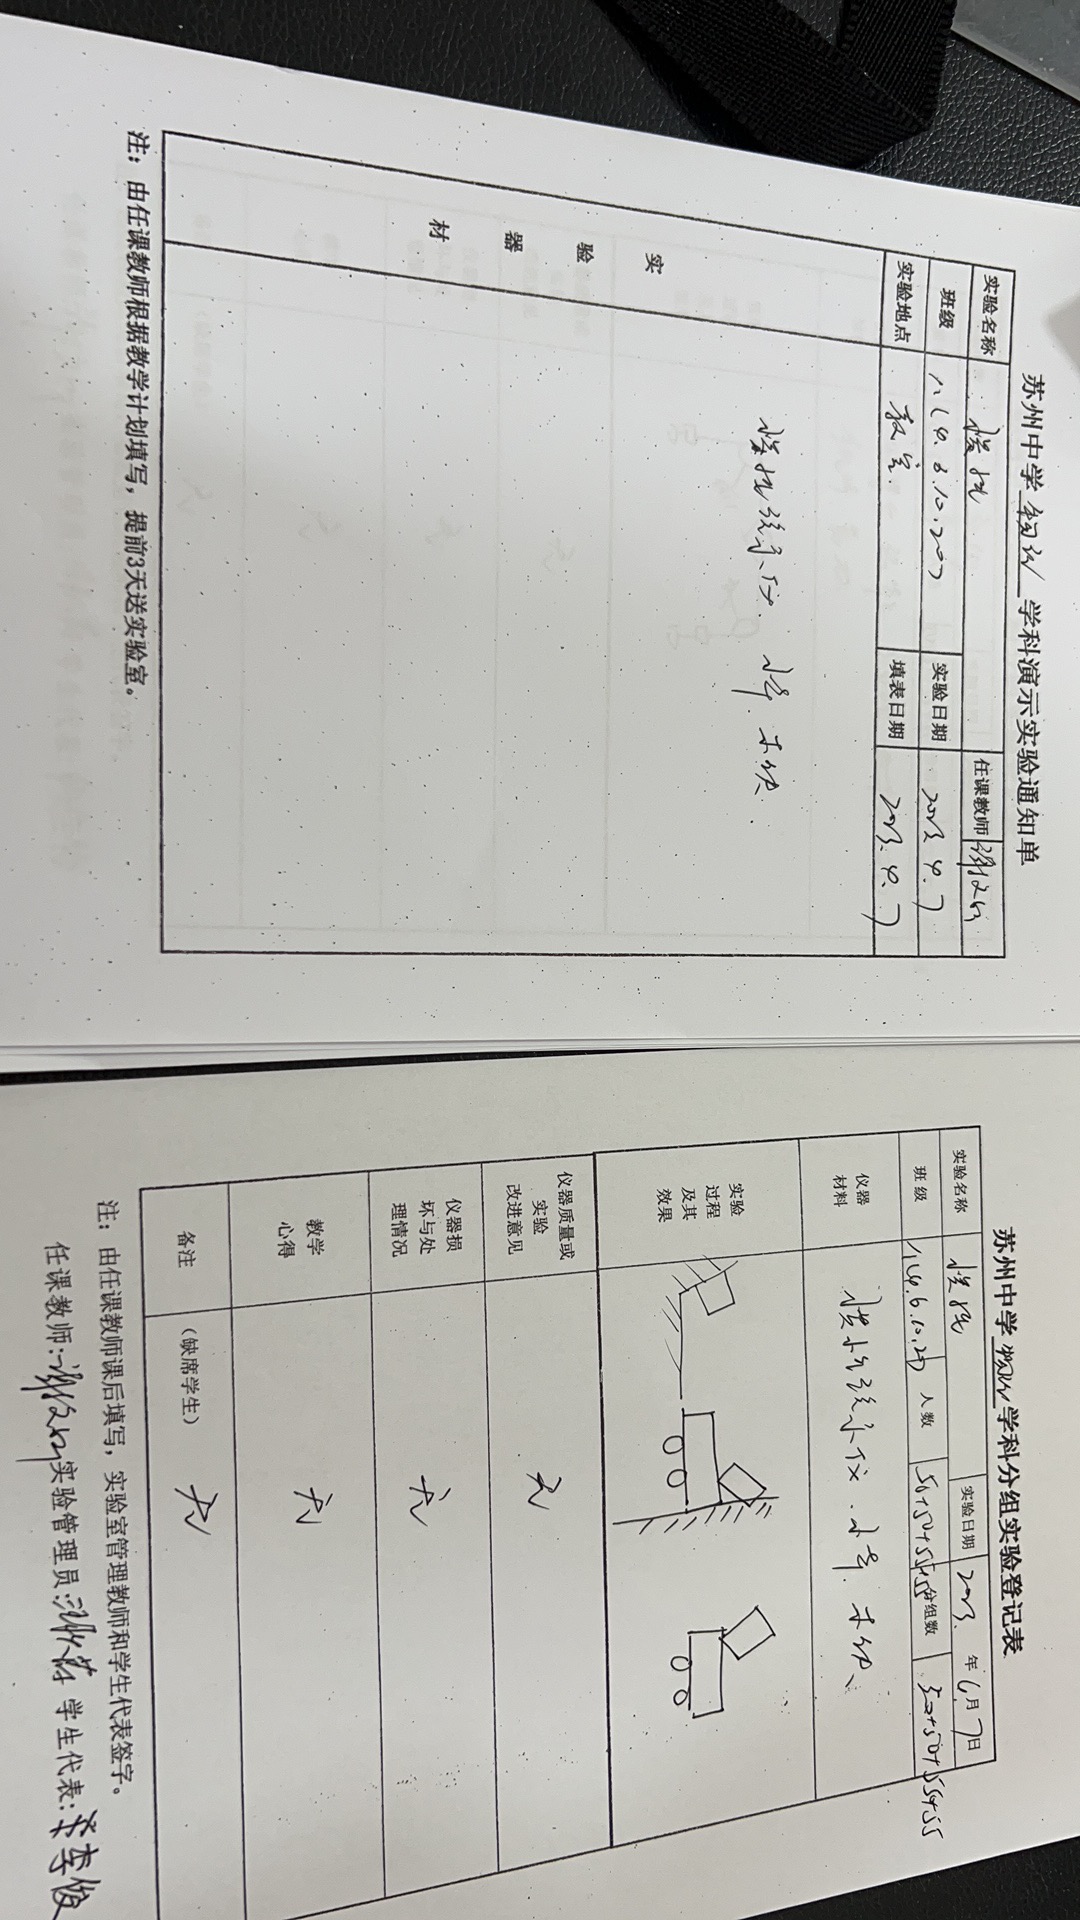 苏州中学 物理 学科演示实验通知单
实验名称 惯性 任课教师
班级 八(4.6.10.20) 实验日期 2023.4.7
实验地点 教室 填表日期 2023.4.7
实验器材
惯性演示仪. 小车. 木块.
注：由任课教师根据教学计划填写，提前3天送实验室。
苏州中学 物理 学科分组实验登记表
实验名称 惯性 实验日期 2023. 年 月 7日
班级 八(4.6.10.20) 人数 分组数
仪器材料 惯性演示仪. 小车. 木块.
实验过程及其效果
仪器质量或实验改进意见 无
仪器损坏与处理情况 无
教学心得 无
备注 （缺席学生） 无
注：由任课教师课后填写，实验室管理教师和学生代表签字。
任课教师: 实验管理员: 学生代表: